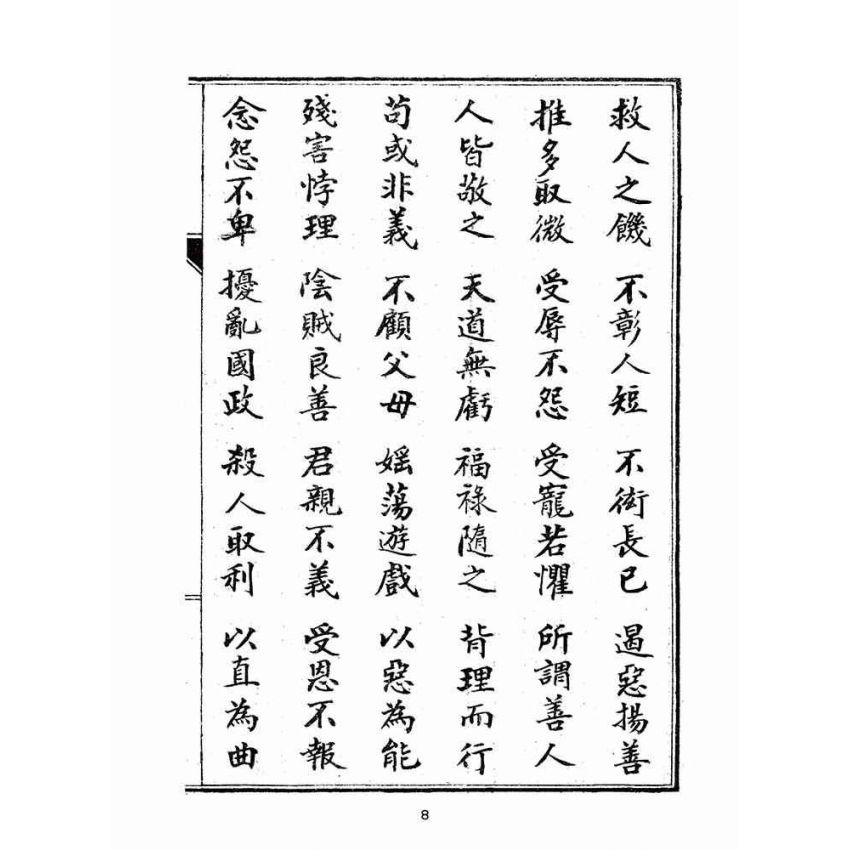 救人之饑 不彰人短 不衒長己 遏惡揚善
推多取微 受辱不怨 受寵若懼 所謂善人
人皆敬之 天道無虧 福祿隨之 背理而行
苟或非義 不顧父母 婬蕩遊戲 以惡為能
殘害悖理 陰賊良善 君親不義 受恩不報
念怨不卑 擾亂國政 殺人取利 以直為曲
8